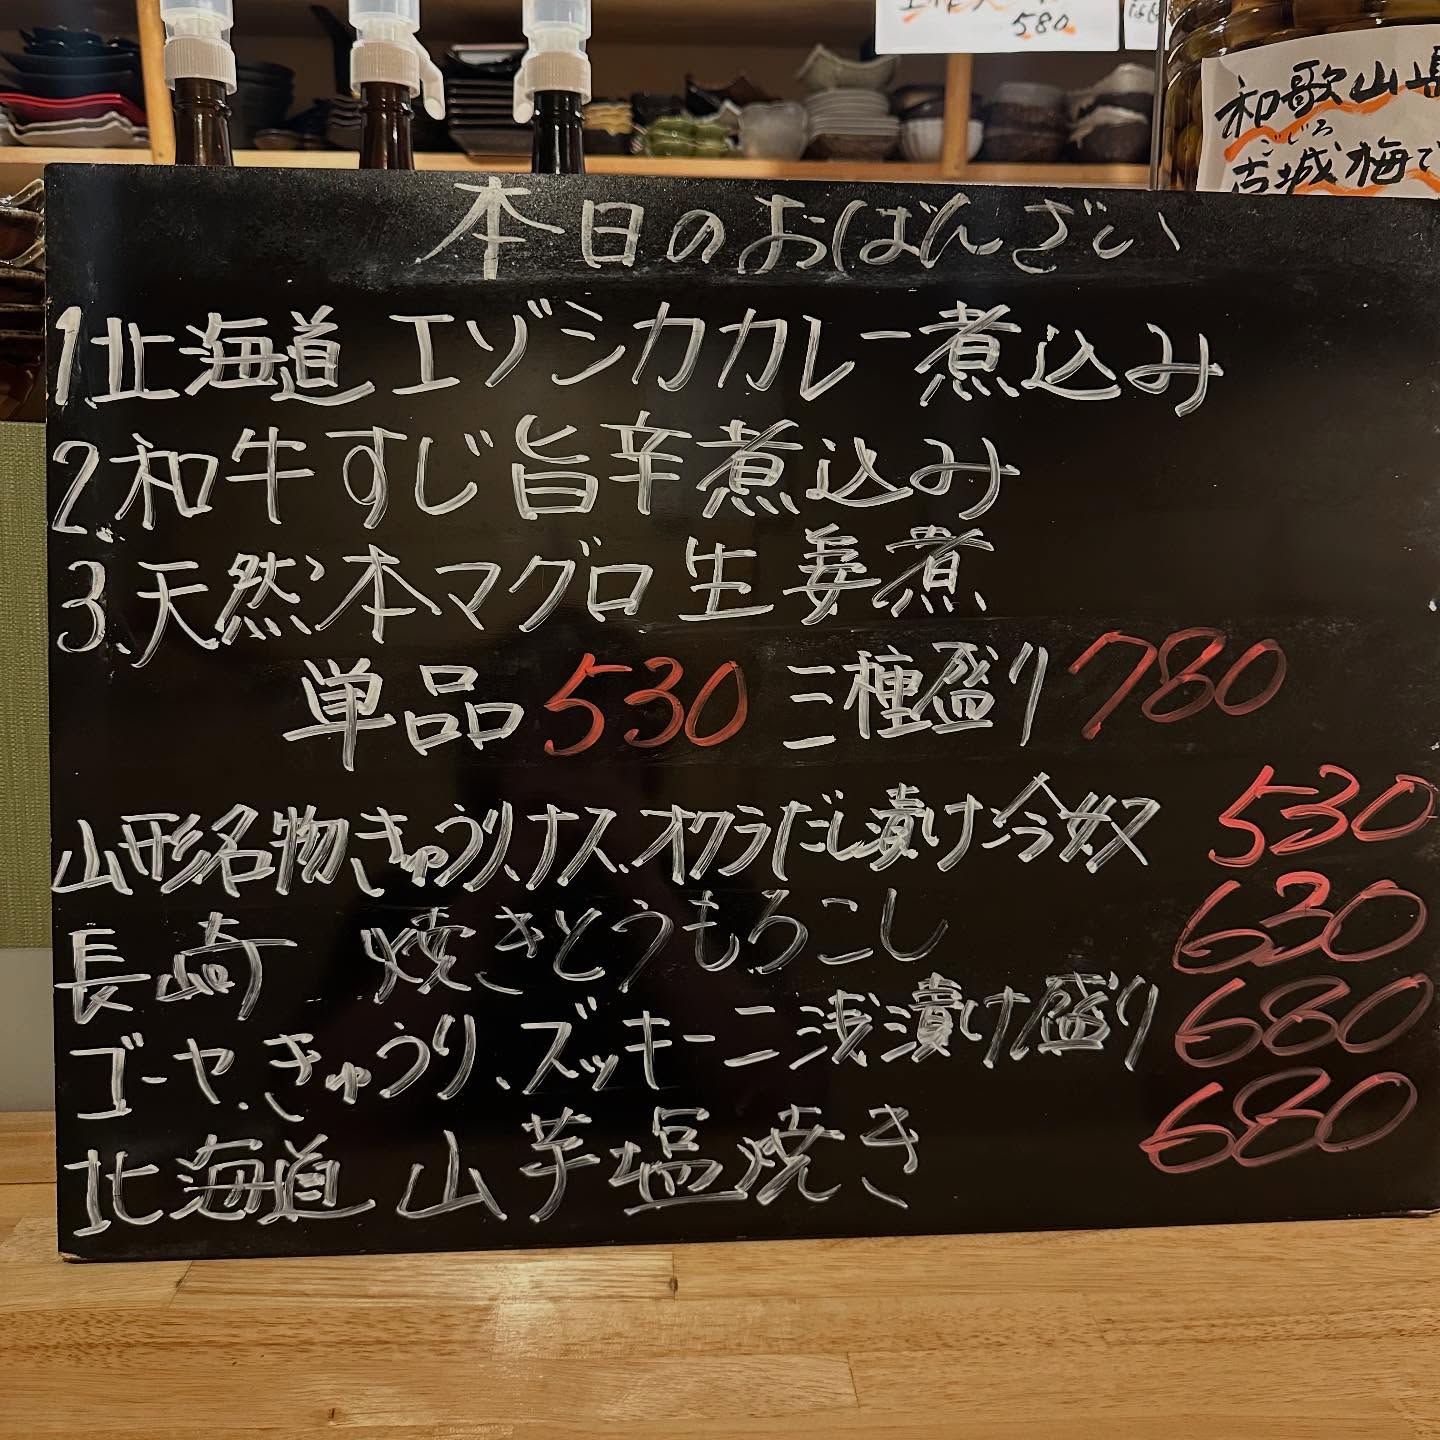 580
和歌山県
ごじろ
古城梅で
本日のおばんざい
1北海道 エゾシカカレー煮込み
2.和牛すじ旨辛煮込み
3.天然本マグロ生姜煮
単品530 三種盛り780
山形名物きゅうり、ナス、オクラだし漬け冷奴 530
長崎 焼きとうもろこし 630
ゴーヤ、きゅうり、ズッキーニ浅漬け盛り 680
北海道 山芋塩焼き 680